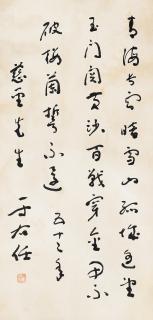 青海長雲暗雪山孤城遙望
玉門關黃沙百戰穿金甲不
破樓蘭誓不還 五十年
慈雲先生 于右任